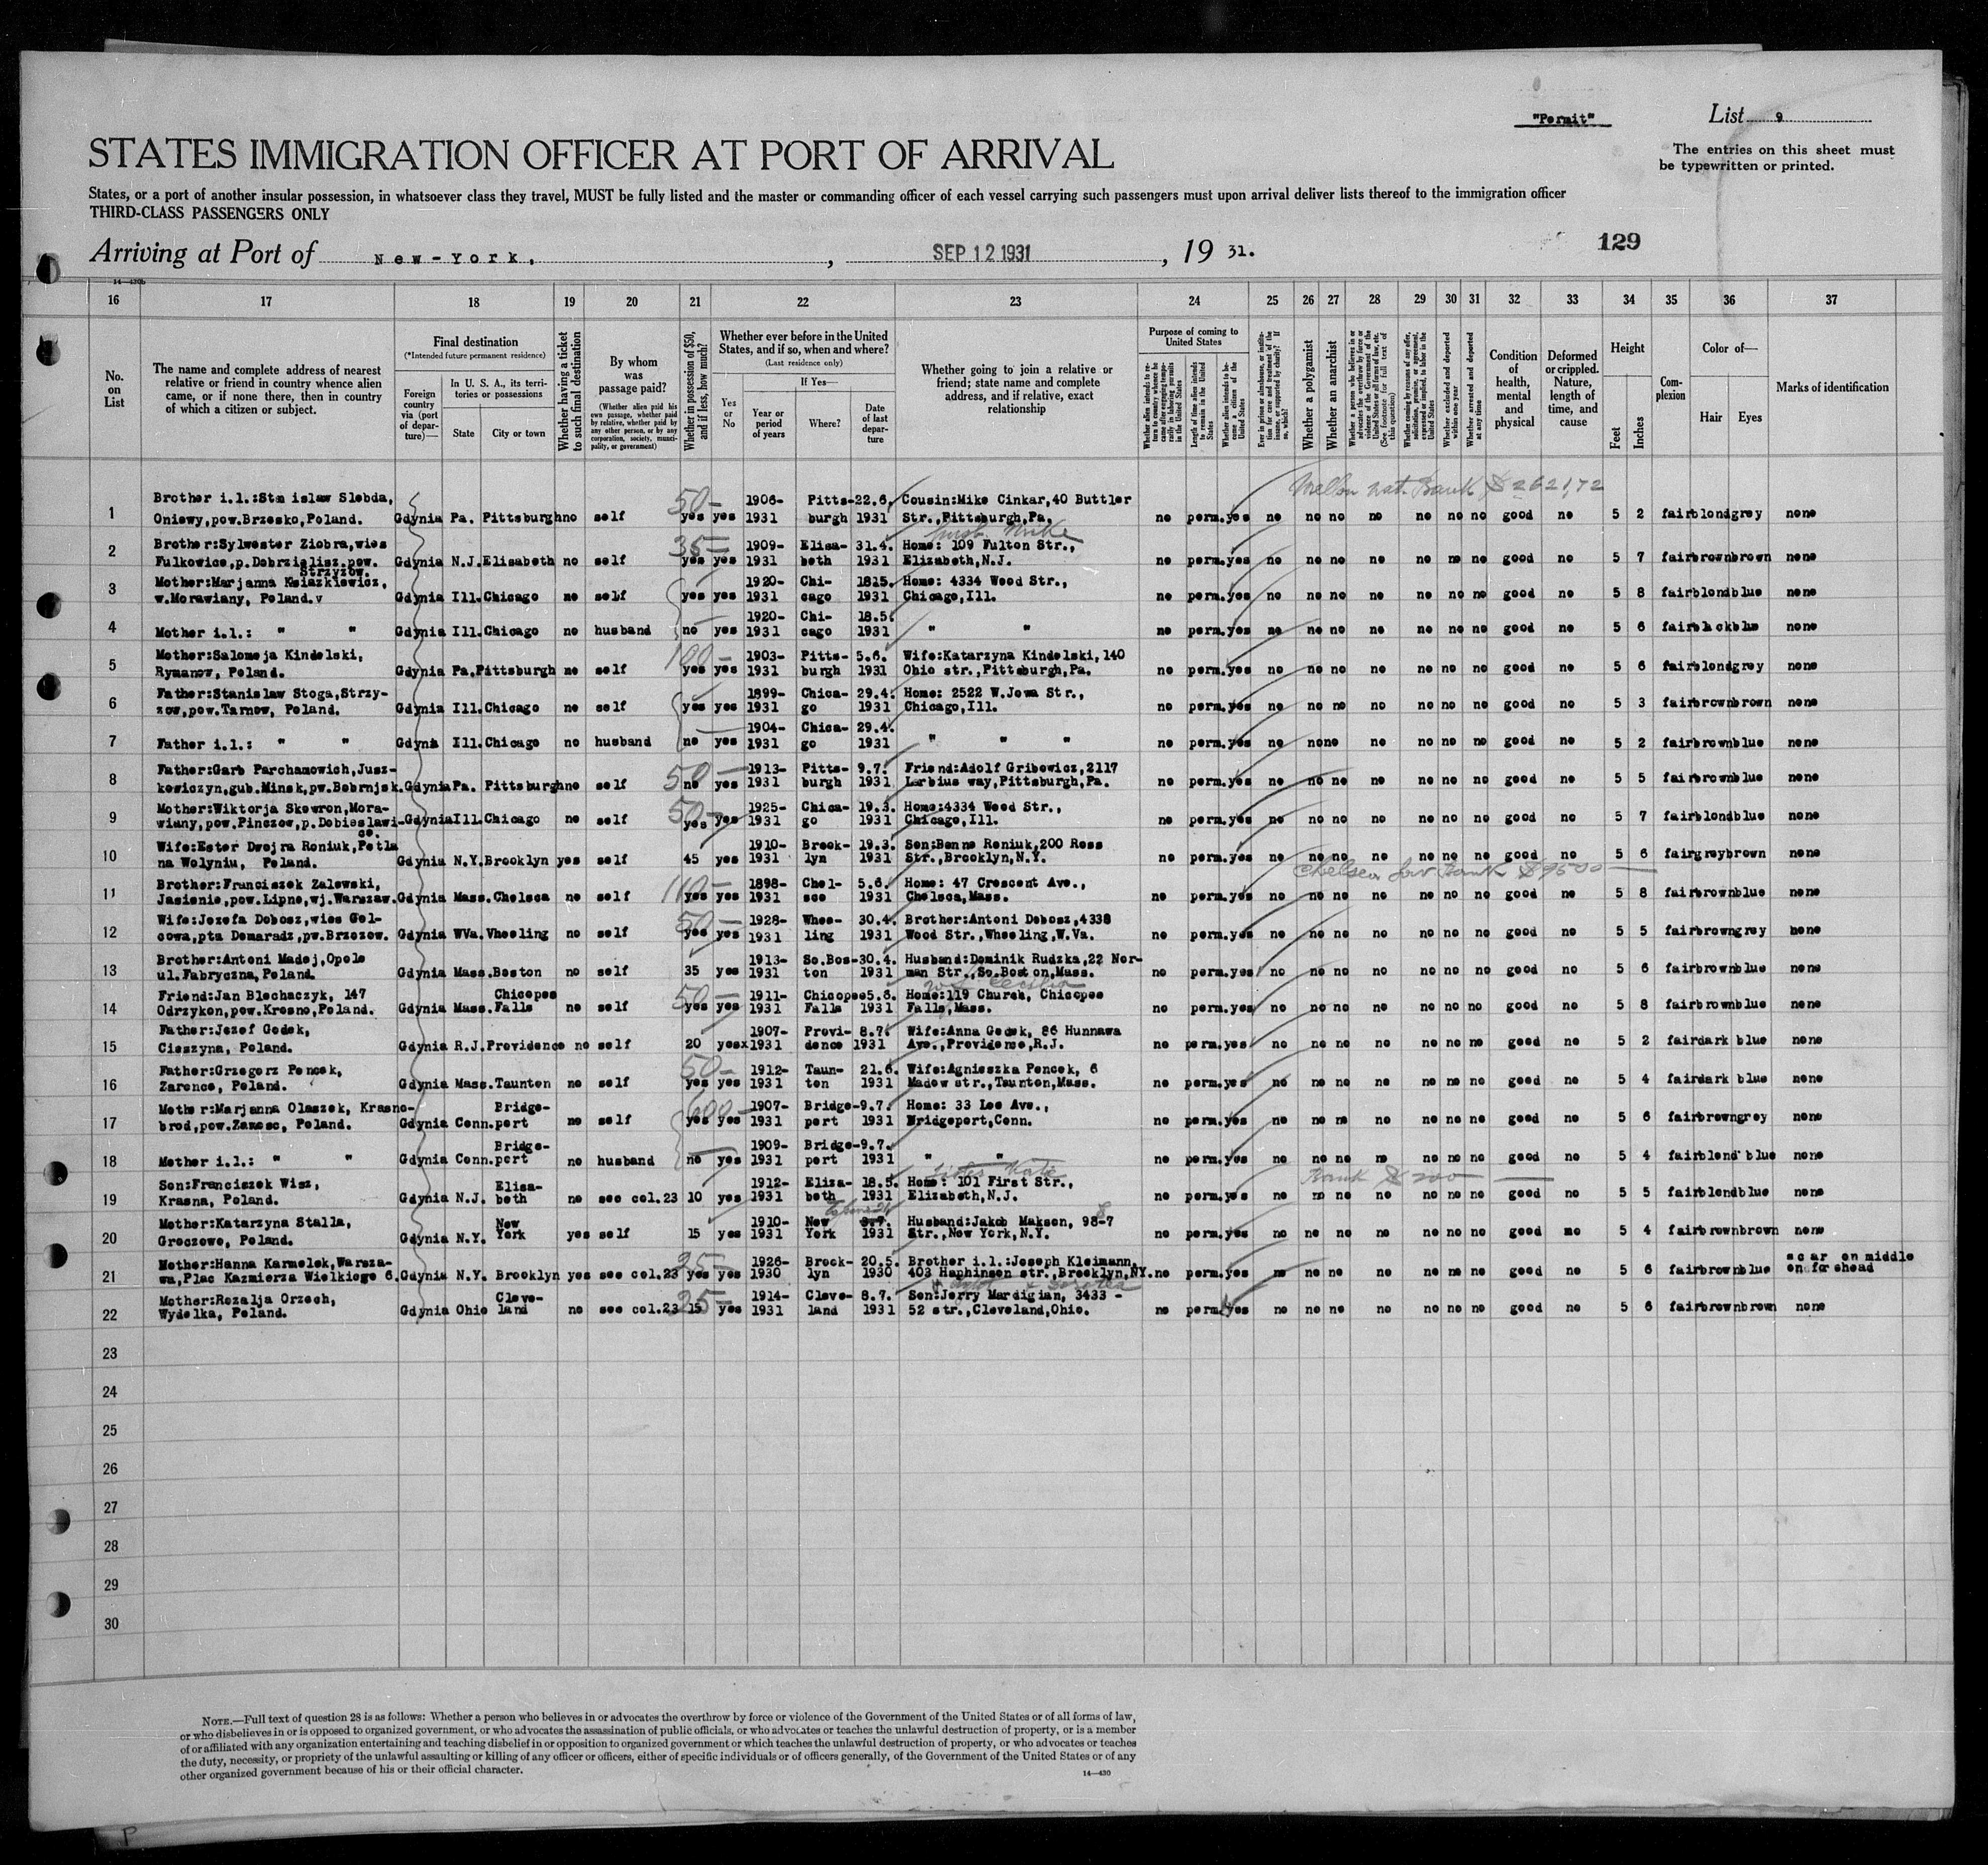 "Permit"
List 9
STATES IMMIGRATION OFFICER AT PORT OF ARRIVAL
The entries on this sheet must
be typewritten or printed.
States, or a port of another insular possession, in whatsoever class they travel, MUST be fully listed and the master or commanding officer of each vessel carrying such passengers must upon arrival deliver lists thereof to the immigration officer
THIRD-CLASS PASSENGERS ONLY
Arriving at Port of New-York, , SEP 12 1931 , 19 31.
129
14—430b
16 17 18 19 20 21 22 23 24 25 26 27 28 29 30 31 32 33 34 35 36 37
No. on List
The name and complete address of nearest relative or friend in country whence alien came, or if none there, then in country of which a citizen or subject.
Final destination
(*Intended future permanent residence)
Foreign country via (port of departure)—
In U. S. A., its territories or possessions
State City or town
Whether having a ticket to such final destination
By whom was passage paid?
(Whether alien paid his own passage, whether paid by relative, whether paid by any other person, or by any corporation, society, municipality, or government)
Whether in possession of $50, and if less, how much?
Whether ever before in the United States, and if so, when and where?
(Last residence only)
Yes or No
If Yes—
Year or period of years Where? Date of last departure
Whether going to join a relative or friend; state name and complete address, and if relative, exact relationship
Purpose of coming to United States
Whether alien intends to return to country whence he came after engaging temporarily in laboring pursuits in the United States
Length of time alien intends to remain in the United States
Whether alien intends to become a citizen of the United States
Ever in prison or almshouse, or institution for care and treatment of the insane, or supported by charity? If so, which?
Whether a polygamist
Whether an anarchist
Whether a person who believes in or advocates the overthrow by force or violence of the Government of the United States or all forms of law, etc. (See footnote for full text of this question)
Whether coming by reason of any offer, solicitation, promise, or agreement, expressed or implied, to labor in the United States
Whether excluded and deported within one year
Whether arrested and deported at any time
Condition of health, mental and physical
Deformed or crippled. Nature, length of time, and cause
Height
Feet Inches
Complexion
Color of—
Hair Eyes
Marks of identification
Mellon Nat. Bank $2621,72
1 Brother i.l.:Stanislaw Slebda, 50- 1906- Pitts- 22.6. Cousin:Mike Cinkar,40 Buttler
Oniewy,pow.Brzesko,Poland. Gdynia Pa. Pittsburgh no self yes yes 1931 burgh 1931 Str.,Pittsburgh,Pa. no perm. yes no no no no no no no good no 5 2 fair blond grey none
2 Brother:Sylwester Ziobra,wies 35- 1909- Elisa- 31.4. Home: 109 Fulton Str.,
Fulkowice,p.Dobrzielisz.pow. Gdynia N.J. Elisabeth no self yes yes 1931 beth 1931 Elizabeth,N.J. no perm. yes no no no no no no no good no 5 7 fair brown brown none
Strzyzow.
3 Mother:Marjanna Ksiazkiewicz, 1920- Chi- 1815. Home: 4334 Wood Str.,
w.Morawiany, Poland. Gdynia Ill. Chicago no self yes yes 1931 cago 1931 Chicago,Ill. no perm. yes no no no no no no no good no 5 8 fair blond blue none
4 1920- Chi- 18.5.
Mother i.l.: " " Gdynia Ill. Chicago no husband no yes 1931 cago 1931 " " no perm. yes no no no no no no no good no 5 6 fair black blue none
5 Mother:Salomeja Kindelski, 100- 1903- Pitts- 5.6. Wife:Katarzyna Kindelski,140
Rymanow, Poland. Gdynia Pa. Pittsburgh no self yes yes 1931 burgh 1931 Ohio str.,Pittsburgh,Pa. no perm. yes no no no no no no no good no 5 6 fair blond grey none
6 Father:Stanislaw Stoga,Strzy- 1899- Chica- 29.4. Home: 2522 W.Jowa Str.,
zow,pow.Tarnow, Poland. Gdynia Ill. Chicago no self yes yes 1931 go 1931 Chicago,Ill. no perm. yes no no no no no no no good no 5 3 fair brown brown none
7 1904- Chica- 29.4.
Father i.l.: " " Gdynia Ill. Chicago no husband no yes 1931 go 1931 " " " no perm. yes no no no no no no no good no 5 2 fair brown blue none
8 Father:Garb Parchamowich,Jusz- 50- 1913- Pitts- 9.7. Friend:Adolf Gribowicz,2117
kowiczyn,gub.Minsk,pw.Bobrnjsk. Gdynia Pa. Pittsburgh no self no yes 1931 burgh 1931 Larbius way,Pittsburgh,Pa. no perm. yes no no no no no no no good no 5 5 fair brown blue none
9 Mother:Wiktorja Skowron,Mora- 50- 1925- Chica- 19.3. Home:4334 Wood Str.,
wiany,pow.Pinczow,p.Dobieslawi- Gdynia Ill. Chicago no self yes yes 1931 go 1931 Chicago,Ill. no perm. yes no no no no no no no good no 5 7 fair blond blue none
ce.
10 Wife:Ester Dwojra Roniuk,Petla 1910- Brook- 19.3. Son:Benne Roniuk,200 Ross
na Wolyniu, Poland. Gdynia N.Y. Brooklyn yes self 45 yes 1931 lyn 1931 Str.,Brooklyn,N.Y. no perm. yes no no no no no no no good no 5 6 fair grey brown none
Chelsea Sav Bank $9500
11 Brother:Franciszek Zalewski, 110- 1898- Chel- 5.6. Home: 47 Crescent Ave.,
Jasienie,pow.Lipno,wj.Warszaw. Gdynia Mass. Chelsea no self yes yes 1931 see 1931 Chelsea,Mass. no perm. yes no no no no no no no good no 5 8 fair brown blue none
12 Wife:Jozefa Dobosz,wies Gol- 50- 1928- Whee- 30.4. Brother:Antoni Dobosz,4338
cowa,pta Domaradz,pw.Brzozow. Gdynia WVa. Vheeling no self yes yes 1931 ling 1931 Wood Str.,Wheeling,W.Va. no perm. yes no no no no no no no good no 5 5 fair brown grey none
13 Brother:Antoni Madej,Opole 1913- So.Bos- 30.4. Husband:Dominik Rudzka,22 Nor-
ul.Fabryczna,Poland. Gdynia Mass. Boston no self 35 yes 1931 ton 1931 man Str.,So.Boston,Mass. no perm. yes no no no no no no no good no 5 6 fair brown blue none
14 Friend:Jan Blechaczyk, 147 Chicopee 50- 1911- Chicopee 5.6. Home:119 Church, Chicopee
Odrzykon,pow.Krosno,Poland. Gdynia Mass. Falls no self yes yes 1931 Falls 1931 Falls,Mass. no perm. yes no no no no no no no good no 5 8 fair brown blue none
15 Father:Jozef Godek, 1907- Provi- 8.7. Wife:Anna Godek, 86 Hunnawa
Cieszyna, Poland. Gdynia R.J. Providence no self 20 yesx 1931 dence 1931 Ave.,Providence,R.J. no perm. yes no no no no no no no good no 5 2 fair dark blue none
16 Father:Grzegorz Pencek, 50- 1912- Taun- 21.6. Wife:Agnieszka Pencek, 6
Zarence, Poland. Gdynia Mass. Taunton no self yes yes 1931 ton 1931 Madow str.,Taunton,Mass. no perm. yes no no no no no no no good no 5 4 fair dark blue none
17 Mother:Marjanna Olaszek, Krasno- Bridge- 600- 1907- Bridge- 9.7. Home: 33 Lee Ave.,
brod,pow.Zamosc, Poland. Gdynia Conn. port no self yes yes 1931 port 1931 Bridgeport,Conn. no perm. yes no no no no no no no good no 5 6 fair brown grey none
18 Bridge- 1909- Bridge- 9.7.
Mother i.l.: " " Gdynia Conn. port no husband no yes 1931 port 1931 " " no perm. yes no no no no no no no good no 5 4 fair blond blue none
Sister Kate
Bank $200
19 Son:Franciszek Wisz, Elisa- 1912- Eliza- 18.5. Home: 101 First Str.,
Krasna, Poland. Gdynia N.J. beth no see col.23 10 yes 1931 beth 1931 Elizabeth,N.J. no perm. yes no no no no no no no good no 5 5 fair blond blue none
20 Mother:Katarzyna Stalla, New 1910- New 8.7. Husband:Jakob Makson, 98-7
Groczowe, Poland. Gdynia N.Y. York yes self 15 yes 1931 York 1931 Str.,New York,N.Y. no perm. yes no no no no no no no good no 5 4 fair brown brown none
21 Mother:Hanna Karmelek,Warsza- 25- 1926- Brook- 20.5. Brother i.l.:Joseph Kleimann, scar on middle
wa,Plac Kazmierza Wielkiego 6. Gdynia N.Y. Brooklyn yes see col.23 yes yes 1930 lyn 1930 403 Haphinson str.,Brooklyn,NY. no perm. yes no no no no no no no good no 5 6 fair brown blue on forehead
22 Mother:Rozalja Orzech, Cleve- 25- 1914- Cleve- 8.7. Son:Jerry Mardigian, 3433 -
Wydelka, Poland. Gdynia Ohio land no see col.23 15 yes 1931 land 1931 52 str.,Cleveland,Ohio. no perm. yes no no no no no no no good no 5 6 fair brown brown none
23
24
25
26
27
28
29
30
NOTE.—Full text of question 28 is as follows: Whether a person who believes in or advocates the overthrow by force or violence of the Government of the United States or of all forms of law,
or who disbelieves in or is opposed to organized government, or who advocates the assassination of public officials, or who advocates or teaches the unlawful destruction of property, or is a member
of or affiliated with any organization entertaining and teaching disbelief in or opposition to organized government or which teaches the unlawful destruction of property, or who advocates or teaches
the duty, necessity, or propriety of the unlawful assaulting or killing of any officer or officers, either of specific individuals or of officers generally, of the Government of the United States or of any
other organized government because of his or their official character.
14—430
P